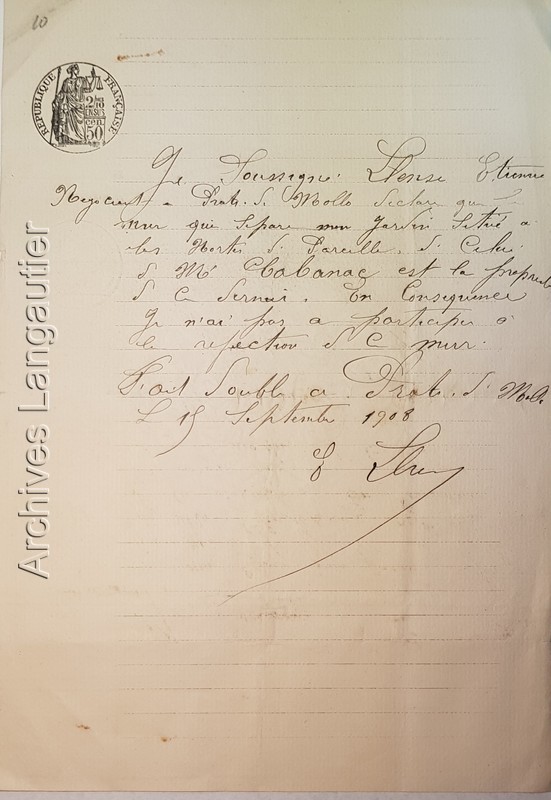 10
RÉPUBLIQUE FRANÇAISE
2/10
EN SUS
50 cen
Je Soussigné Llense Etienne
Negociant a Prats. de Mollo declare que le
mur qui separe mon jardin situé a
les Hortes de Pareille de Celui
de Mr Chabanac est la propriete
de Ce dernier. En Consequence
Je n'ai pas a participer a
la refection de Ce mur.
Fait double a Prats. de Mollo
Le 15 Septembre 1908
E Llense
Archives Langautier